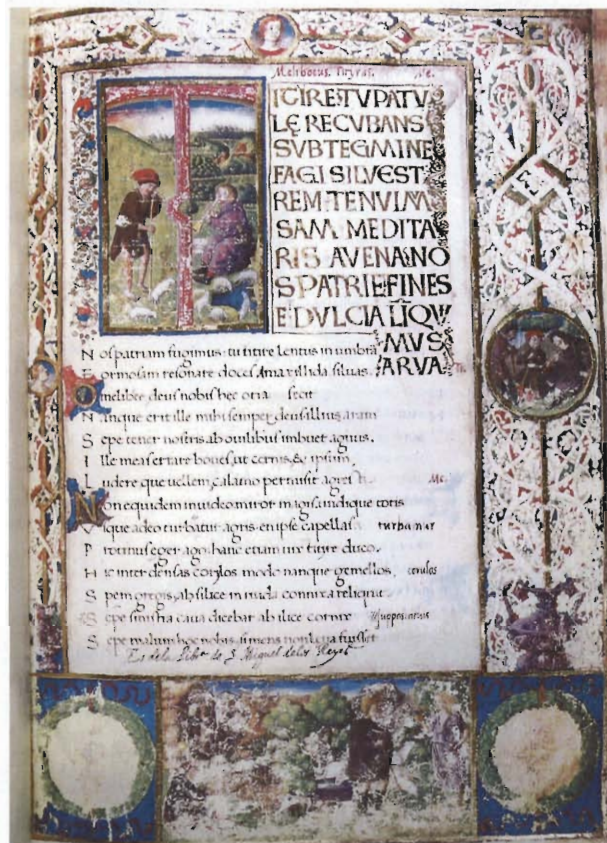 Melibocus. Tityrus. Me.
TIGIRE·TVPATV
LĘ RECVBANS
SVBTEGMINE
FAGI SILVEST
REM·TENVIM
SAM MEDITA
RIS AVENA·NO
S PATRIĘ FINES
E·DVLCIA LĪQV
MVS
ARVA
Nos patriam fugimus: tu titire lentus in umbra
Formosam resonare doces Amarillida siluas.
O melibee deus nobis hec ocia fecit
Nanque erit ille mihi semper deus illius aram
Sepe tener nostris ab ouilibus imbuet agnus.
Ille meas errare boues, ut cernis, & ipsum
Ludere que uellem calamo permisit agresti. Me.
Non equidem inuideo miror magis undique totis
Vsque adeo turbatur agris en ipse capellas turbamur
Protinus eger ago: hanc etiam uix titire duco.
Hic inter densas corylos modo nanque gemellos, corulos
Spem gregis, ah silice in nuda connixa reliquit.
Sepe sinistra caua dicebat ab ilice cornix
Sepe malum hoc nobis, si mens non leua fuisset
Es dela Libra. de S. Miguel delos Reyes